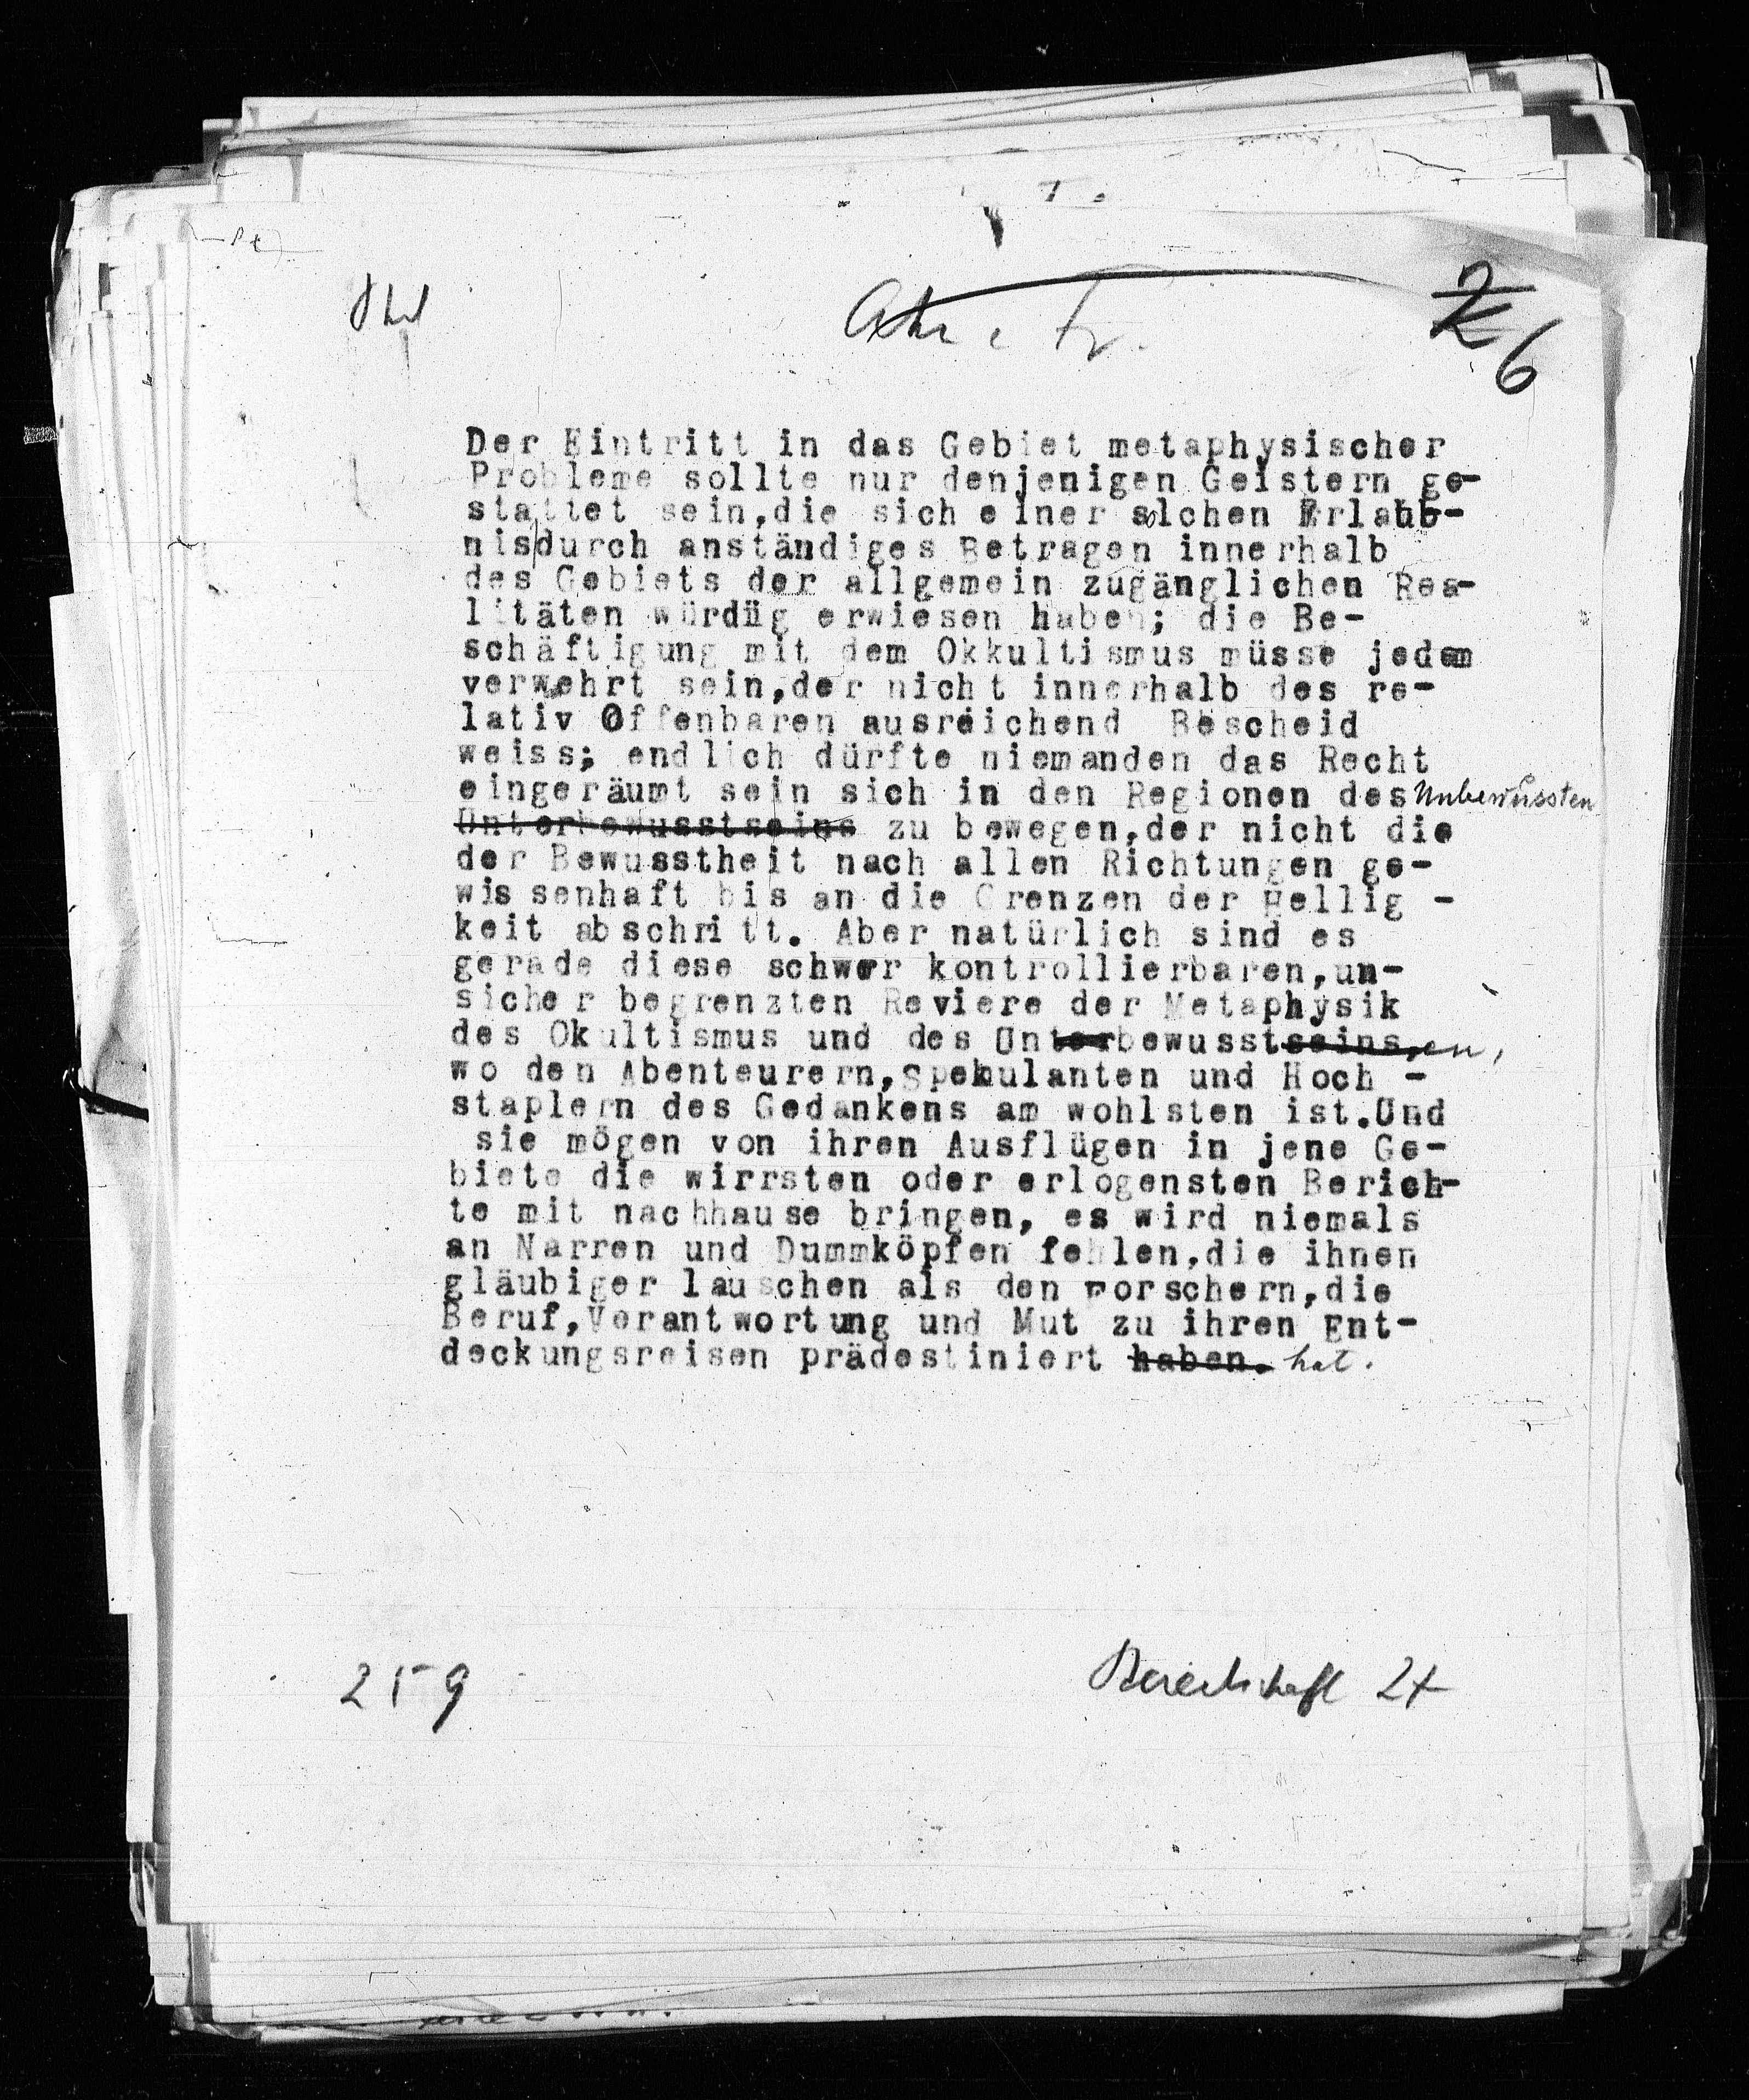 6
Der Eintritt in das Gebiet metaphysischer
Probleme sollte nur denjenigen Geistern ge-
stattet sein,die sich einer solchen Erlaub-
nisdurch anständiges Betragen innerhalb
des Gebiets der allgemein zugänglichen Rea-
litäten würdüg erwiesen haben; die Be-
schäftigung mit dem Okkultismus müsse jedem
verwehrt sein,der nicht innerhalb des re-
lativ Offenbaren ausreichend Bescheid
weiss; endlich dürfte niemanden das Recht
eingeräumt sein sich in den Regionen des Unbewussten
Unterbewusstseins zu bewegen,der nicht die
der Bewusstheit nach allen Richtungen ge-
wissenhaft bis an die Grenzen der Hellig -
keit abschritt. Aber natürlich sind es
gerade diese schwer kontrollierbaren,un-
sicher begrenzten Reviere der Metaphysik
des Okultismus und des Unterbewusstseins,en,
wo den Abenteurern,Spekulanten und Hoch -
staplern des Gedankens am wohlsten ist.Und
sie mögen von ihren Ausflügen in jene Ge-
biete die wirrsten oder erlogensten Berich-
te mit nachhause bringen, es wird niemals
an Narren und Dummköpfen fehlen,die ihnen
gläubiger lauschen als den Forschern,die
Beruf,Verantwortung und Mut zu ihren Ent-
deckungsreisen prädestiniert haben. hat.
259